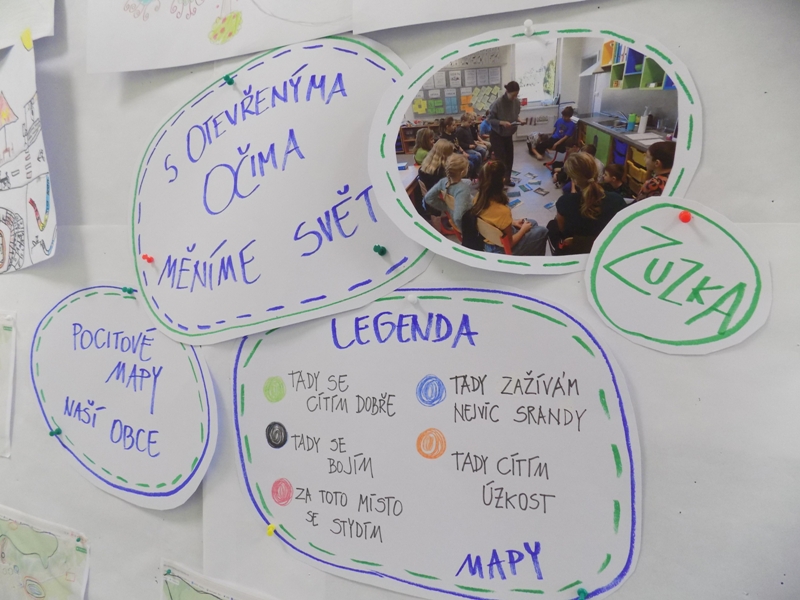 S OTEVŘENÝMA
OČIMA
MĚNÍME SVĚT
ZUZKA
POCITOVÉ
MAPY
NAŠÍ OBCE
LEGENDA
TADY SE
CÍTÍM DOBŘE
TADY SE
BOJÍM
ZA TOTO MÍSTO
SE STYDÍM
TADY ZAŽÍVÁM
NEJVÍC SRANDY
TADY CÍTÍM
ÚZKOST
MAPY